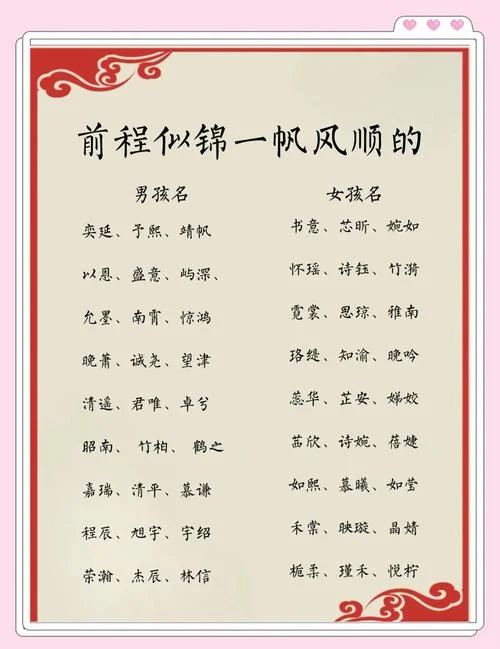 前程似锦一帆风顺的
男孩名
奕延、予熙、靖帆
以恩、盛意、屿深、
允墨、南霄、惊鸿
晚萧、诚尧、望津
清遥、君唯、卓兮
昭南、竹柏、鹤之
嘉瑞、清平、慕谦
程辰、旭宇、宇绍
荣瀚、杰辰、林信
女孩名
书意、芯昕、婉如
怀瑶、诗钰、竹漪
霓裳、思琼、雅南
珞缇、知渝、晚吟
蕊华、芷安、娣姣
茁欣、诗婉、蓓婕
如熙、慕曦、如莹
禾棠、映璇、晶婧
栀柔、瑾禾、悦柠